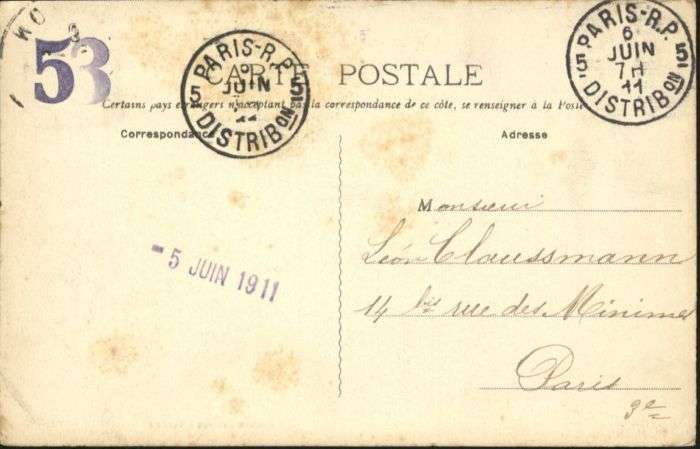 53
PARIS-R.P.
6
JUIN
11
5 5E
DISTRIBON
PARIS-R.P.
6
JUIN
7H
11
5 5E
DISTRIBON
CARTE POSTALE
Certains pays étrangers n'acceptant pas la correspondance de ce côte, se renseigner à la Poste
Correspondance
Adresse
Monsieur
Léon Claussmann
14 bis rue des Minimes
Paris
3e
- 5 JUIN 1911